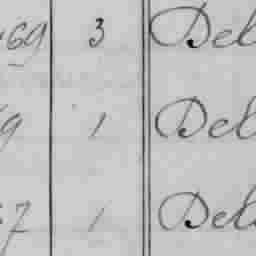 69 3 Del
9 1 Del
7 1 Del